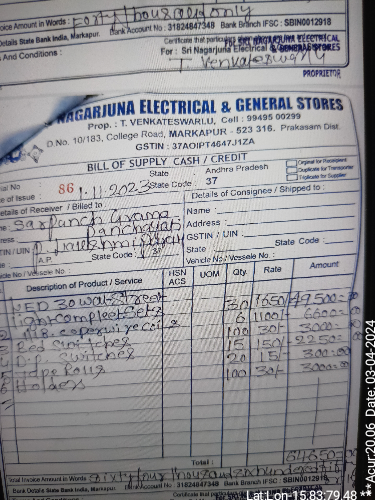 Invoice Amount in Words : Forty thousand only
Details State Bank India, Markapur. Bank Account No : 31824847348 Bank Branch IFSC : SBIN0012918
And Conditions :
Certificate that particulars
For : Sri Nagarjuna Electrical & General Stores
T. Venkateswarlu
PROPRIETOR
NAGARJUNA ELECTRICAL & GENERAL STORES
Prop. : T. VENKATESWARLU, Cell : 99495 00299
D.No. 10/183, College Road, MARKAPUR - 523 316. Prakasam Dist.
GSTIN : 37AOIPT4647J1ZA
BILL OF SUPPLY CASH / CREDIT
Original for Receipient
Duplicate for Transporter
Triplicate for Supplier
State Andhra Pradesh
State Code : 37
Serial No 86
of Issue : 1.11.2023
Details of Receiver / Billed to
Details of Consignee / Shipped to :
Sarpanch Grama
Panchayati
Name :
Address :
GSTIN / UIN :
State :
State Code :
A.P.
State Code : 37
Vehicle No / Vessele No :
Vehicle No / Vessele No :
Description of Product / Service HSN ACS UOM Qty. Rate Amount
LED 30 watt street 30 1650/- 49500=00
light complete sets 6 1100/- 6600=00
coper wire coils 100 30/- 3000=00
Bed switches 15 150/- 2250=00
Switches 20 15/- 300=00
Tape Rolls 100 30/- 3000=00
Holders
Total : 64650=00
Total Invoice Amount in Words : Sixty four thousand six hundred fifty
Bank Details State Bank India, Markapur. Bank Account No : 31824847348 Bank Branch IFSC : SBIN0012918
Certificate that
Lat Lon 15.83:79.48 ** Acur:20.06 Date: 03-04-2024